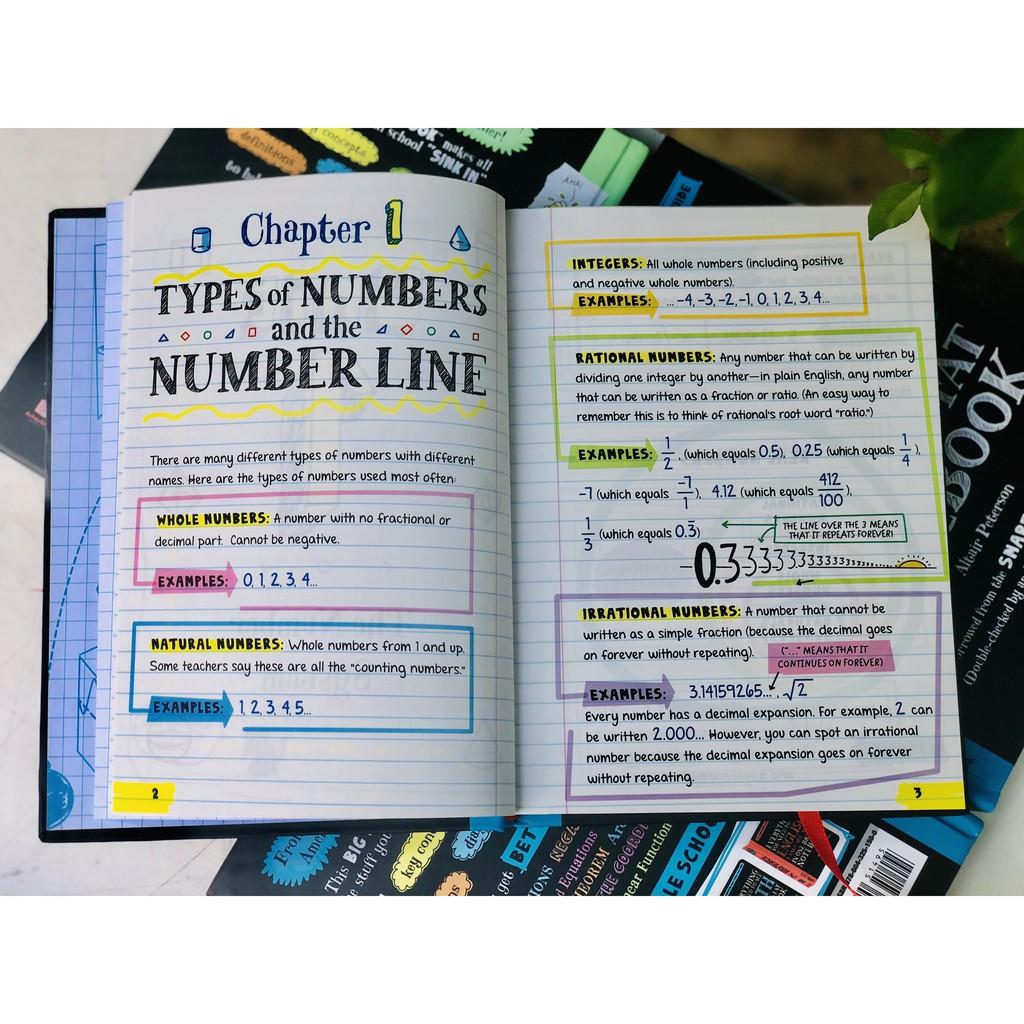 definitions
concepts
OOK" makes all
school "SINK IN"
AHA!
Chapter 1
TYPES of NUMBERS
and the
NUMBER LINE
There are many different types of numbers with different
names. Here are the types of numbers used most often:
WHOLE NUMBERS: A number with no fractional or
decimal part. Cannot be negative.
EXAMPLES: 0, 1, 2, 3, 4...
NATURAL NUMBERS: Whole numbers from 1 and up.
Some teachers say these are all the "counting numbers."
EXAMPLES: 1, 2, 3, 4, 5...
2
INTEGERS: All whole numbers (including positive
and negative whole numbers).
EXAMPLES: ... -4, -3, -2, -1, 0, 1, 2, 3, 4...
RATIONAL NUMBERS: Any number that can be written by
dividing one integer by another—in plain English, any number
that can be written as a fraction or ratio. (An easy way to
remember this is to think of rational's root word "ratio.")
EXAMPLES: 1/2, (which equals 0.5), 0.25 (which equals 1/4),
-7 (which equals -7/1), 4.12 (which equals 412/100),
1/3 (which equals 0.3̅)
THE LINE OVER THE 3 MEANS
THAT IT REPEATS FOREVER!
0.33333333333333333
IRRATIONAL NUMBERS: A number that cannot be
written as a simple fraction (because the decimal goes
on forever without repeating).
("..." MEANS THAT IT
CONTINUES ON FOREVER)
EXAMPLES: 3.14159265..., √2
Every number has a decimal expansion. For example, 2 can
be written 2.000... However, you can spot an irrational
number because the decimal expansion goes on forever
without repeating.
3
Altair Peterson
rrowed from the SMAR
(Double-checked by a
This BIG
stuff you
key con
get BET
IONS NEGA
Equations
THEOREM
THE COORDI
near Function
LE SCHO
51495